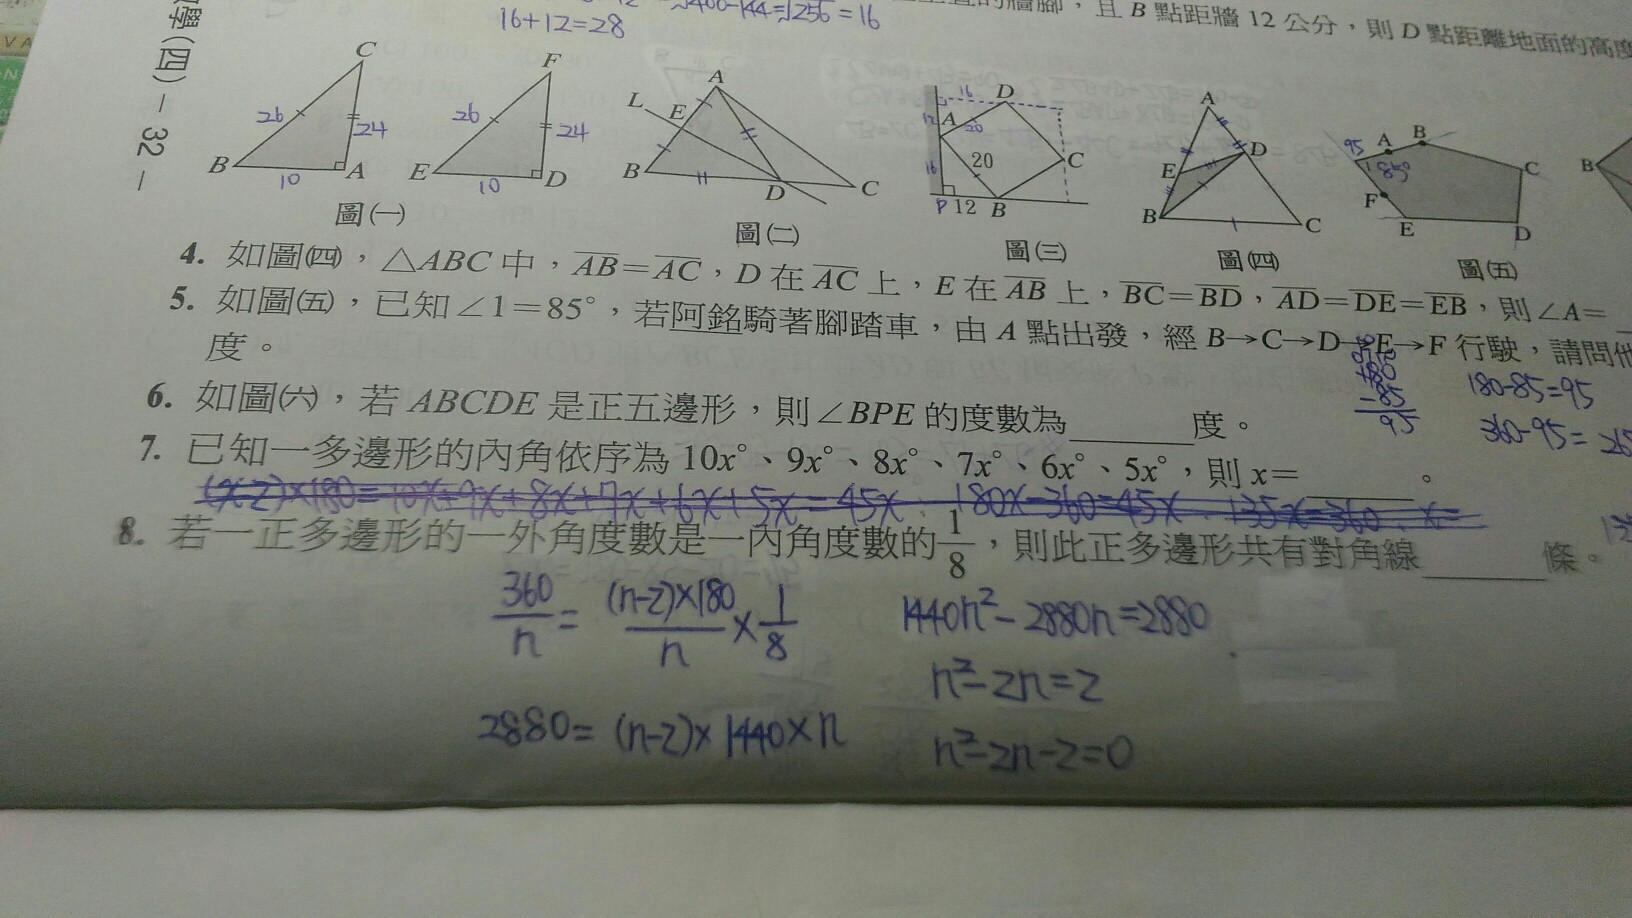 16+12=28
1256=16
且 B 點距牆 12 公分，則 D 點距離地面的高度
學(四) － 32 －
C
26
24
B
10
A
圖(一)
F
26
24
E
10
D
圖(二)
A
L
E
B
D
C
16
D
12
A
20
20
16
C
P 12 B
圖(三)
A
D
E
B
C
圖(四)
95
A
B
1
85°
C
F
E
D
圖(五)
B
4. 如圖(四)，△ABC 中，AB=AC，D 在 AC 上，E 在 AB 上，BC=BD，AD=DE=EB，則∠A=
5. 如圖(五)，已知∠1=85°，若阿銘騎著腳踏車，由 A 點出發，經 B→C→D→E→F 行駛，請問他
度。
180
-85
95
180-85=95
360-95=265
6. 如圖(六)，若 ABCDE 是正五邊形，則∠BPE 的度數為______度。
7. 已知一多邊形的內角依序為 10x°、9x°、8x°、7x°、6x°、5x°，則 x=______。
(x-2)×180=10x+9x+8x+7x+6x+5x=45x 180x-360=45x 135x=360 x=
8. 若一正多邊形的一外角度數是一內角度數的1/8，則此正多邊形共有對角線______條。
360/n=(n-2)×180/n×1/8
2880=(n-2)×1440×n
1440n²-2880n=2880
n²-2n=2
n²-2n-2=0